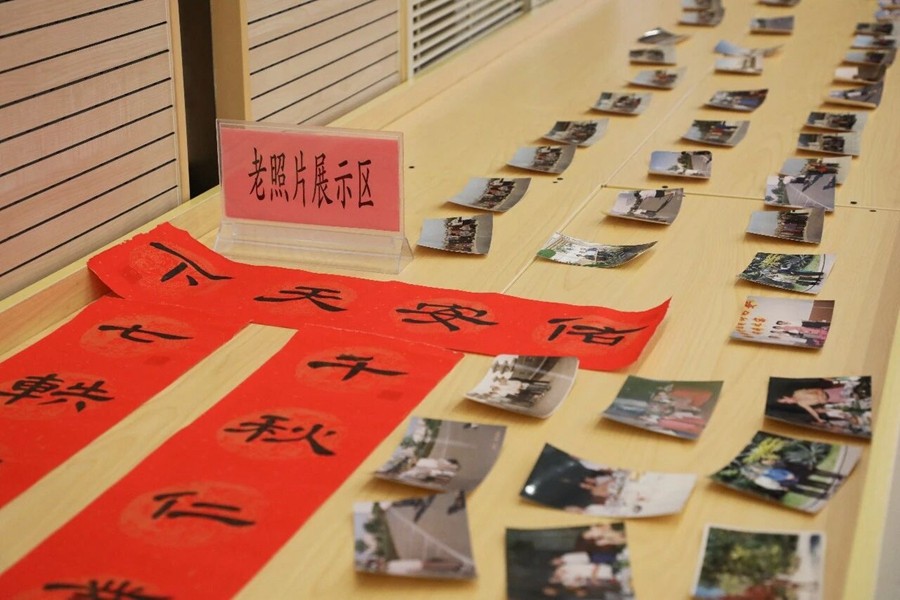 老照片展示区
佑安天下
千秋仁業
七